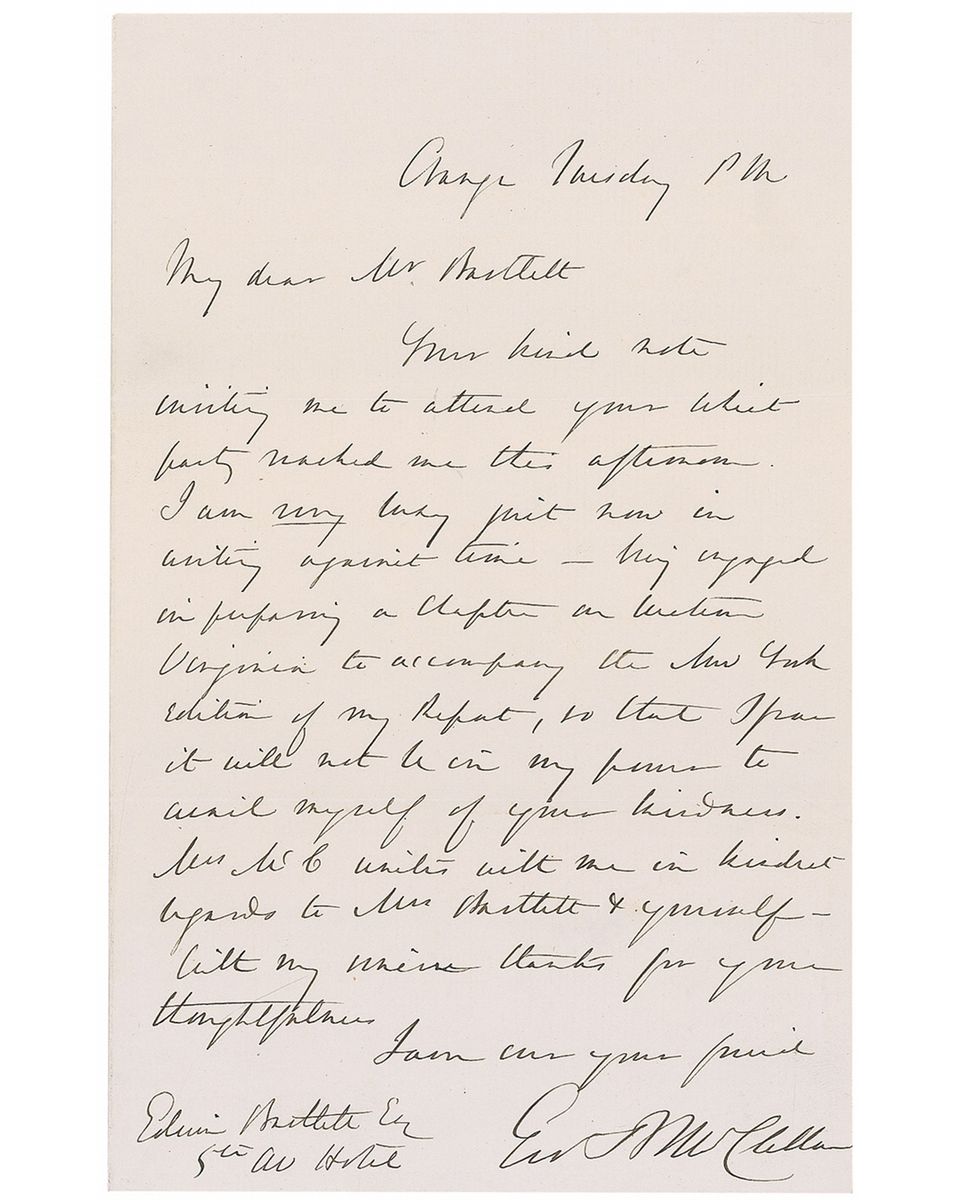 Orange Tuesday P M
My dear Mr Bartlett
Your kind note
inviting me to attend your Whist
party reached me this afternoon.
I am very busy just now in
writing against time – being engaged
in preparing a chapter on Western
Virginia to accompany the New York
Edition of my Report, so that I fear
it will not be in my power to
avail myself of your kindness.
Mrs McC unites with me in kindest
regards to Mrs Bartlett & yourself –
With my sincere thanks for your
thoughtfulness
I am ever your friend
Geo B McClellan
Edwin Bartlett Esq
5th Av Hotel